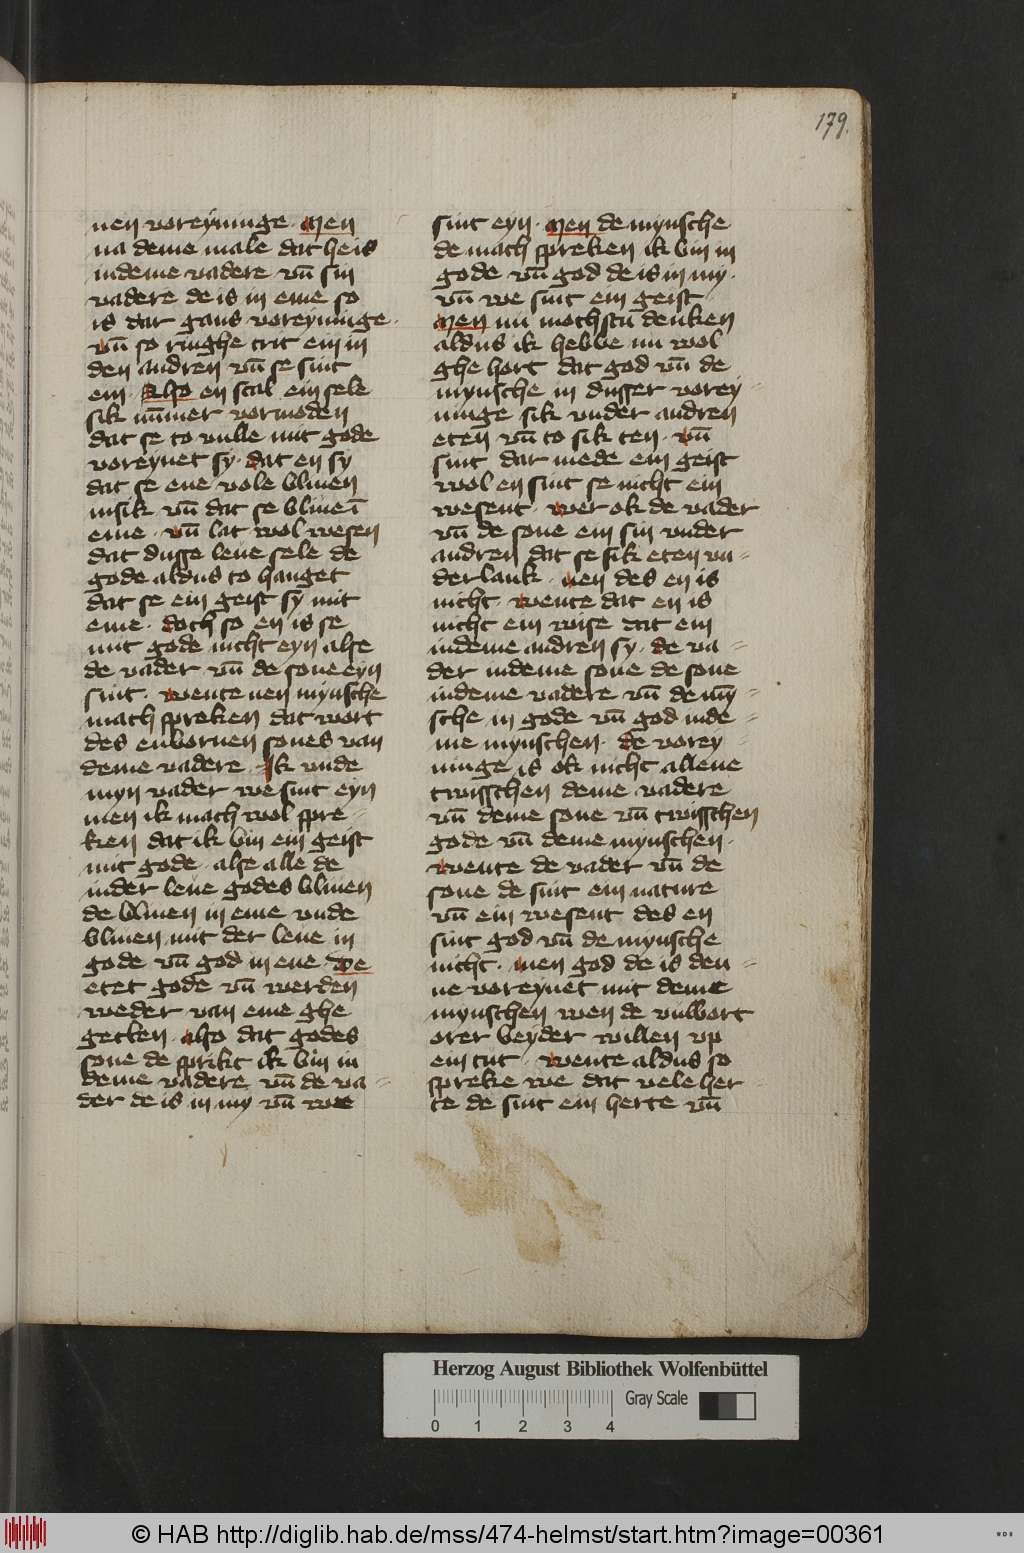 179.
nen voreyninge · Men
na deme male dat he is
indeme vadere vn̄ sin
vadere de is in eme so
is dar gans voreyninge ·
vn̄ so ringhe trit ein in
den andren vn̄ se sint
ein · Also en scal ein sele
sik nūmer vormoden
dat se to vulle mit gode
voreynet sy · dat en sy
dat se ene vole bliuen
insik vn̄ dat se bliuē ī
eme · vn̄ lat wol wesen
dat dusse leue sele de
gode aldus to hanget
dat se ein geist sy mit
eme · doch so en is se
mit gode nicht eyn alse
de vader vn̄ de sone eyn
sint · wente nen mynsche
mach spreken dat wort
des enbornen sones van
deme vadere · Ik vnde
myn vader we sint eyn
men ik mach wol spre-
ken dat ik bin ein geist
mit gode · alse alle de
inder leue godes bliuen
de bliuen in eme vnde
bliuen mit der leue in
gode vn̄ god in ene We
etet gode vn̄ werden
weder van eme ghe
getten · also dat godes
sone de sprikt ik bin in
deme vadere vn̄ de va-
der de is in my vn̄ we
sint eyn · Men de mynsche
de mach spreken ik bin in
gode vn̄ god de is in my ·
vn̄ we sint ein geist
Men nu mochstu denken
aldus ik hebbe nu wol
ghe hort dat god vn̄ de
mynsche in dusser vorey-
ninge sik vnder andren
eten vn̄ to sik ten · vn̄
sint dar mede ein geist
wol en sint se nicht ein
wesent · wer ok de vader
vn̄ de sone ein sin vnder
andren dat se sik eten vn-
derlank · nen des en is
nicht · wente dat en is
nicht ein wise dat ein
indeme andren sy · de va-
der indeme sone de sone
indeme vadere vn̄ de mȳ-
sche in gode vn̄ god inde-
me mynschen · de vorey-
ninge is ok nicht allene
twisschen deme vadere
vn̄ deme sone vn̄ twisschen
gode vn̄ deme mynschen ·
wente de vader vn̄ de
sone de sint ein nature
vn̄ ein wesent des en
sint god vn̄ de mynsche
nicht · men god de is den-
ne voreynet mit deme
mynschen wen de vulbort
orer beyder willen vp
ein tut · wente aldus so
spreke we dat vele her-
te de sint ein herte vn̄
Herzog August Bibliothek Wolfenbüttel
Gray Scale
0 1 2 3 4
© HAB http://diglib.hab.de/mss/474-helmst/start.htm?image=00361
WDB